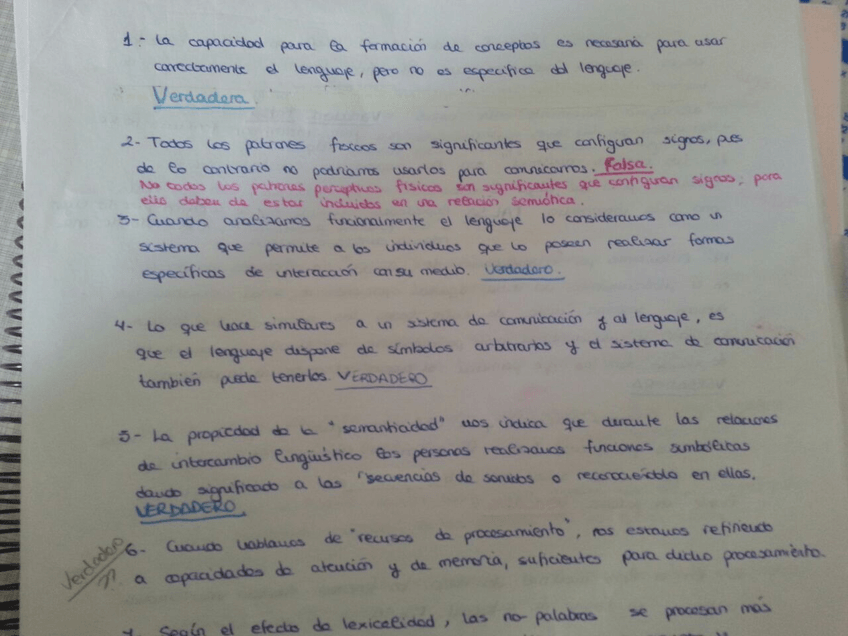 1.- La capacidad para la formación de conceptos es necesaria para usar
correctamente el lenguaje, pero no es específica del lenguaje.
Verdadera.
2- Todos los patrones físicos son significantes que configuran signos, pues
de lo contrario no podríamos usarlos para comunicarnos. Falsa.
No todos los patrones perceptivos físicos son significantes que configuran signos, para
ello deben de estar incluidos en una relación semiótica.
3- Cuando analizamos funcionalmente el lenguaje lo consideramos como un
sistema que permite a los individuos que lo poseen realizar formas
específicas de interacción con su medio. Verdadero.
4- Lo que hace similares a un sistema de comunicación y al lenguaje, es
que el lenguaje dispone de símbolos arbitrarios y el sistema de comunicación
también puede tenerlos. VERDADERO
5- La propiedad de la "semanticidad" nos indica que durante las relaciones
de intercambio lingüístico las personas realizamos funciones simbólicas
dando significado a las secuencias de sonidos o reconociéndolo en ellas.
VERDADERO.
Verdadero ??
6- Cuando hablamos de "recursos de procesamiento", nos estamos refiriendo
a capacidades de atención y de memoria, suficientes para dicho procesamiento.
7- Según el efecto de lexicalidad, las no-palabras se procesan más